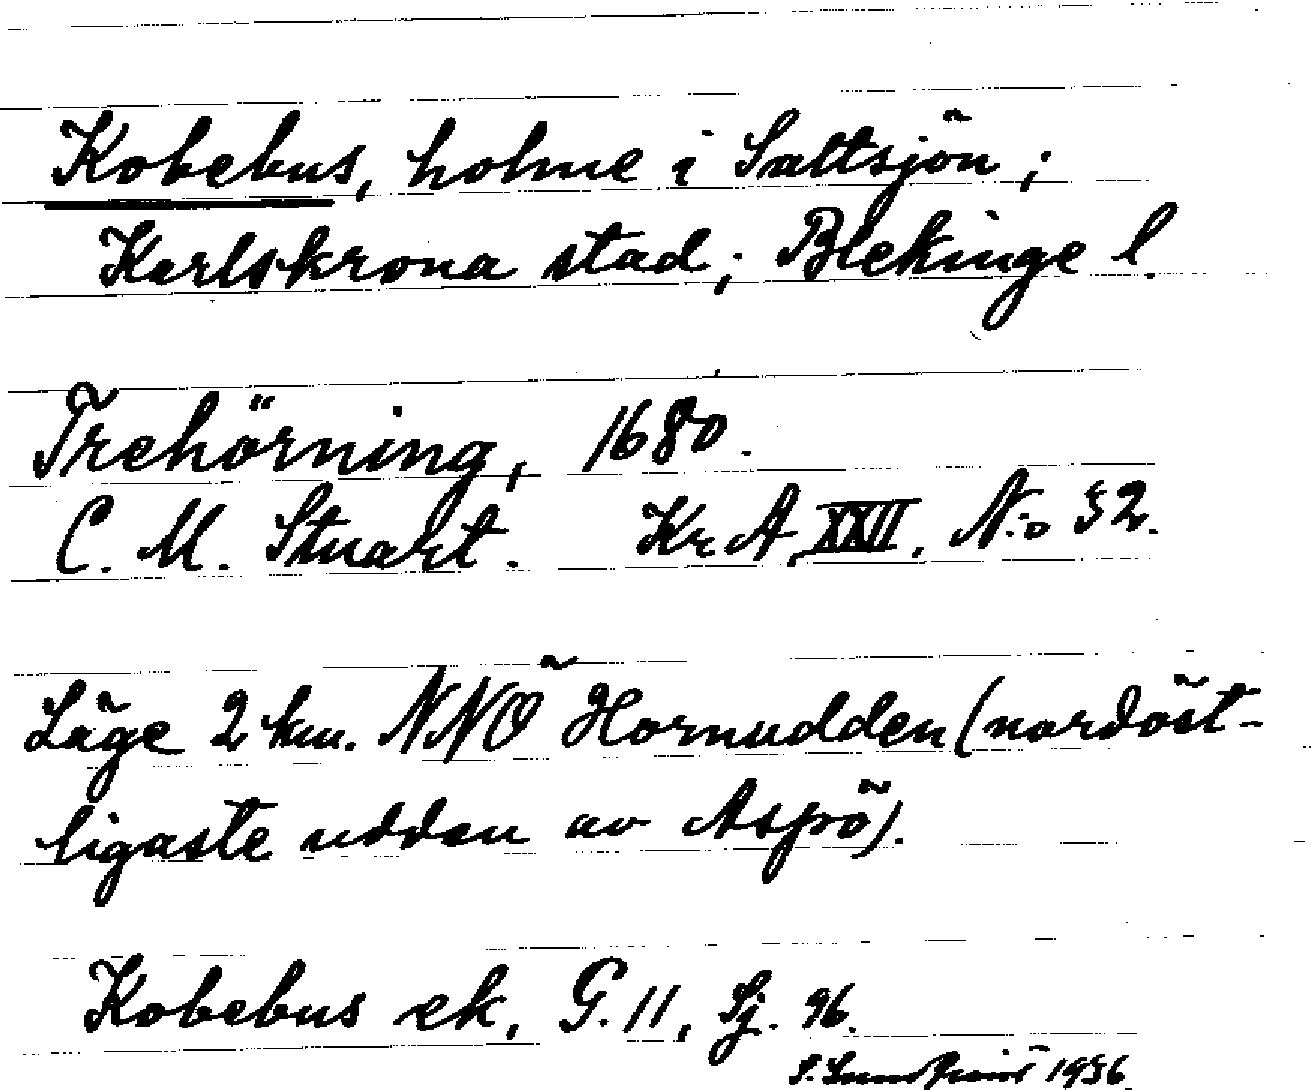 Kobebus, holme i Saltsjön;
Karlskrona stad; Blekinge l.
Trehörning, 1680.
C. M. Stuart. Kr A, XXII, N:o 32.
Läge 2 km. NNÖ Hornudden (nordöst-
ligaste udden av Aspö).
Kobebus ek, G. 11, Sj. 96.
1936